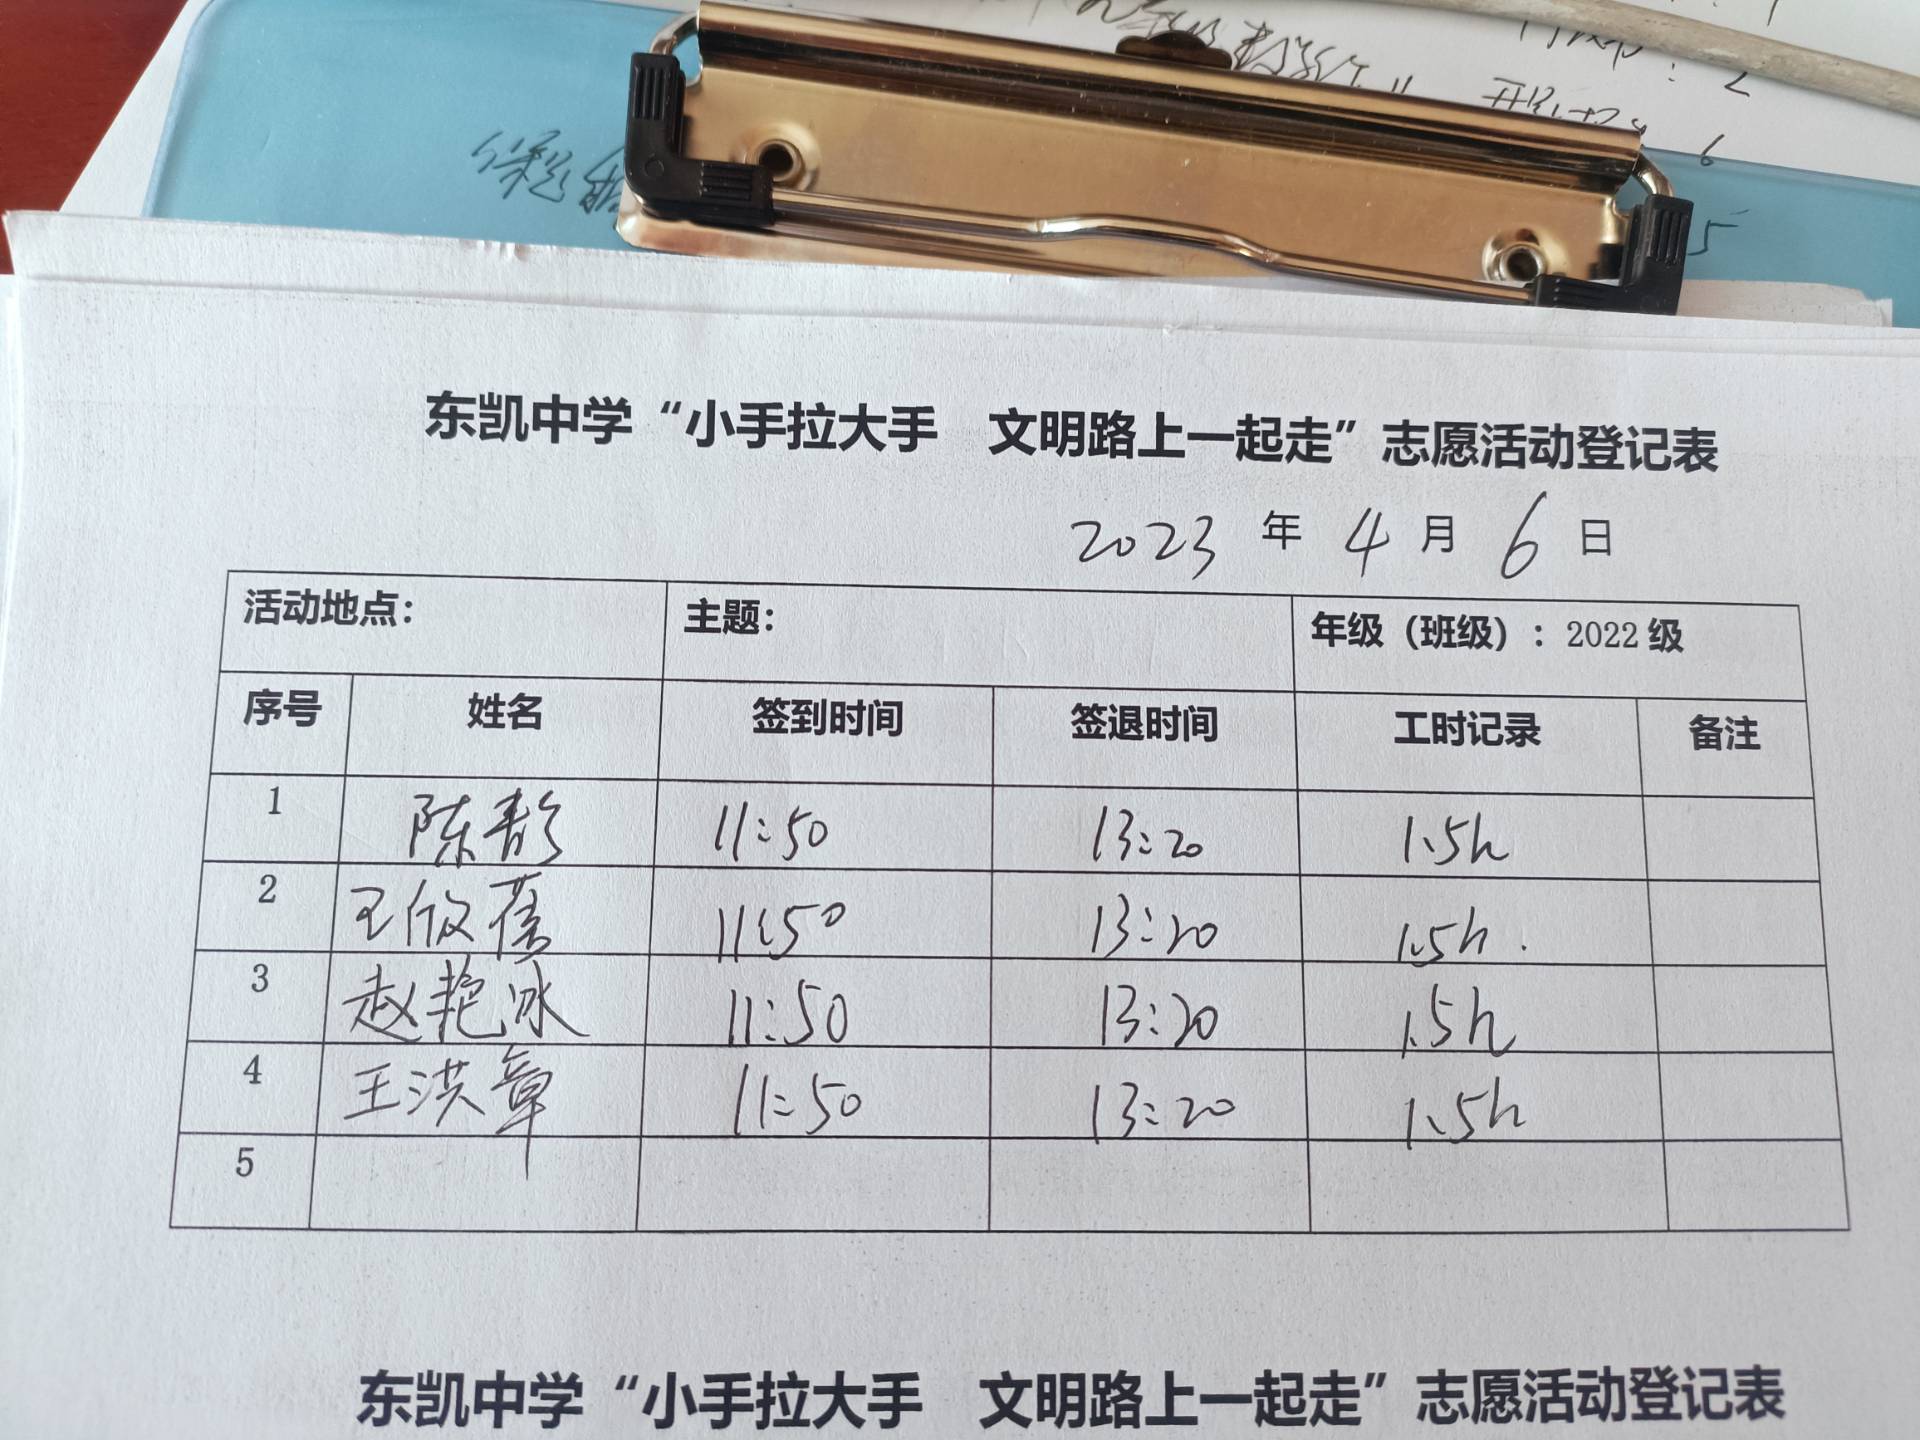 课题
6
5
东凯中学“小手拉大手 文明路上一起走”志愿活动登记表
2023 年 4 月 6 日
活动地点： 主题： 年级（班级）：2022 级
序号 姓名 签到时间 签退时间 工时记录 备注
1 陈韵 11:50 13:20 1.5h
2 王攸蓓 11:50 13:20 1.5h.
3 赵艳冰 11:50 13:20 1.5h
4 王洪章 11:50 13:20 1.5h
5
东凯中学“小手拉大手 文明路上一起走”志愿活动登记表